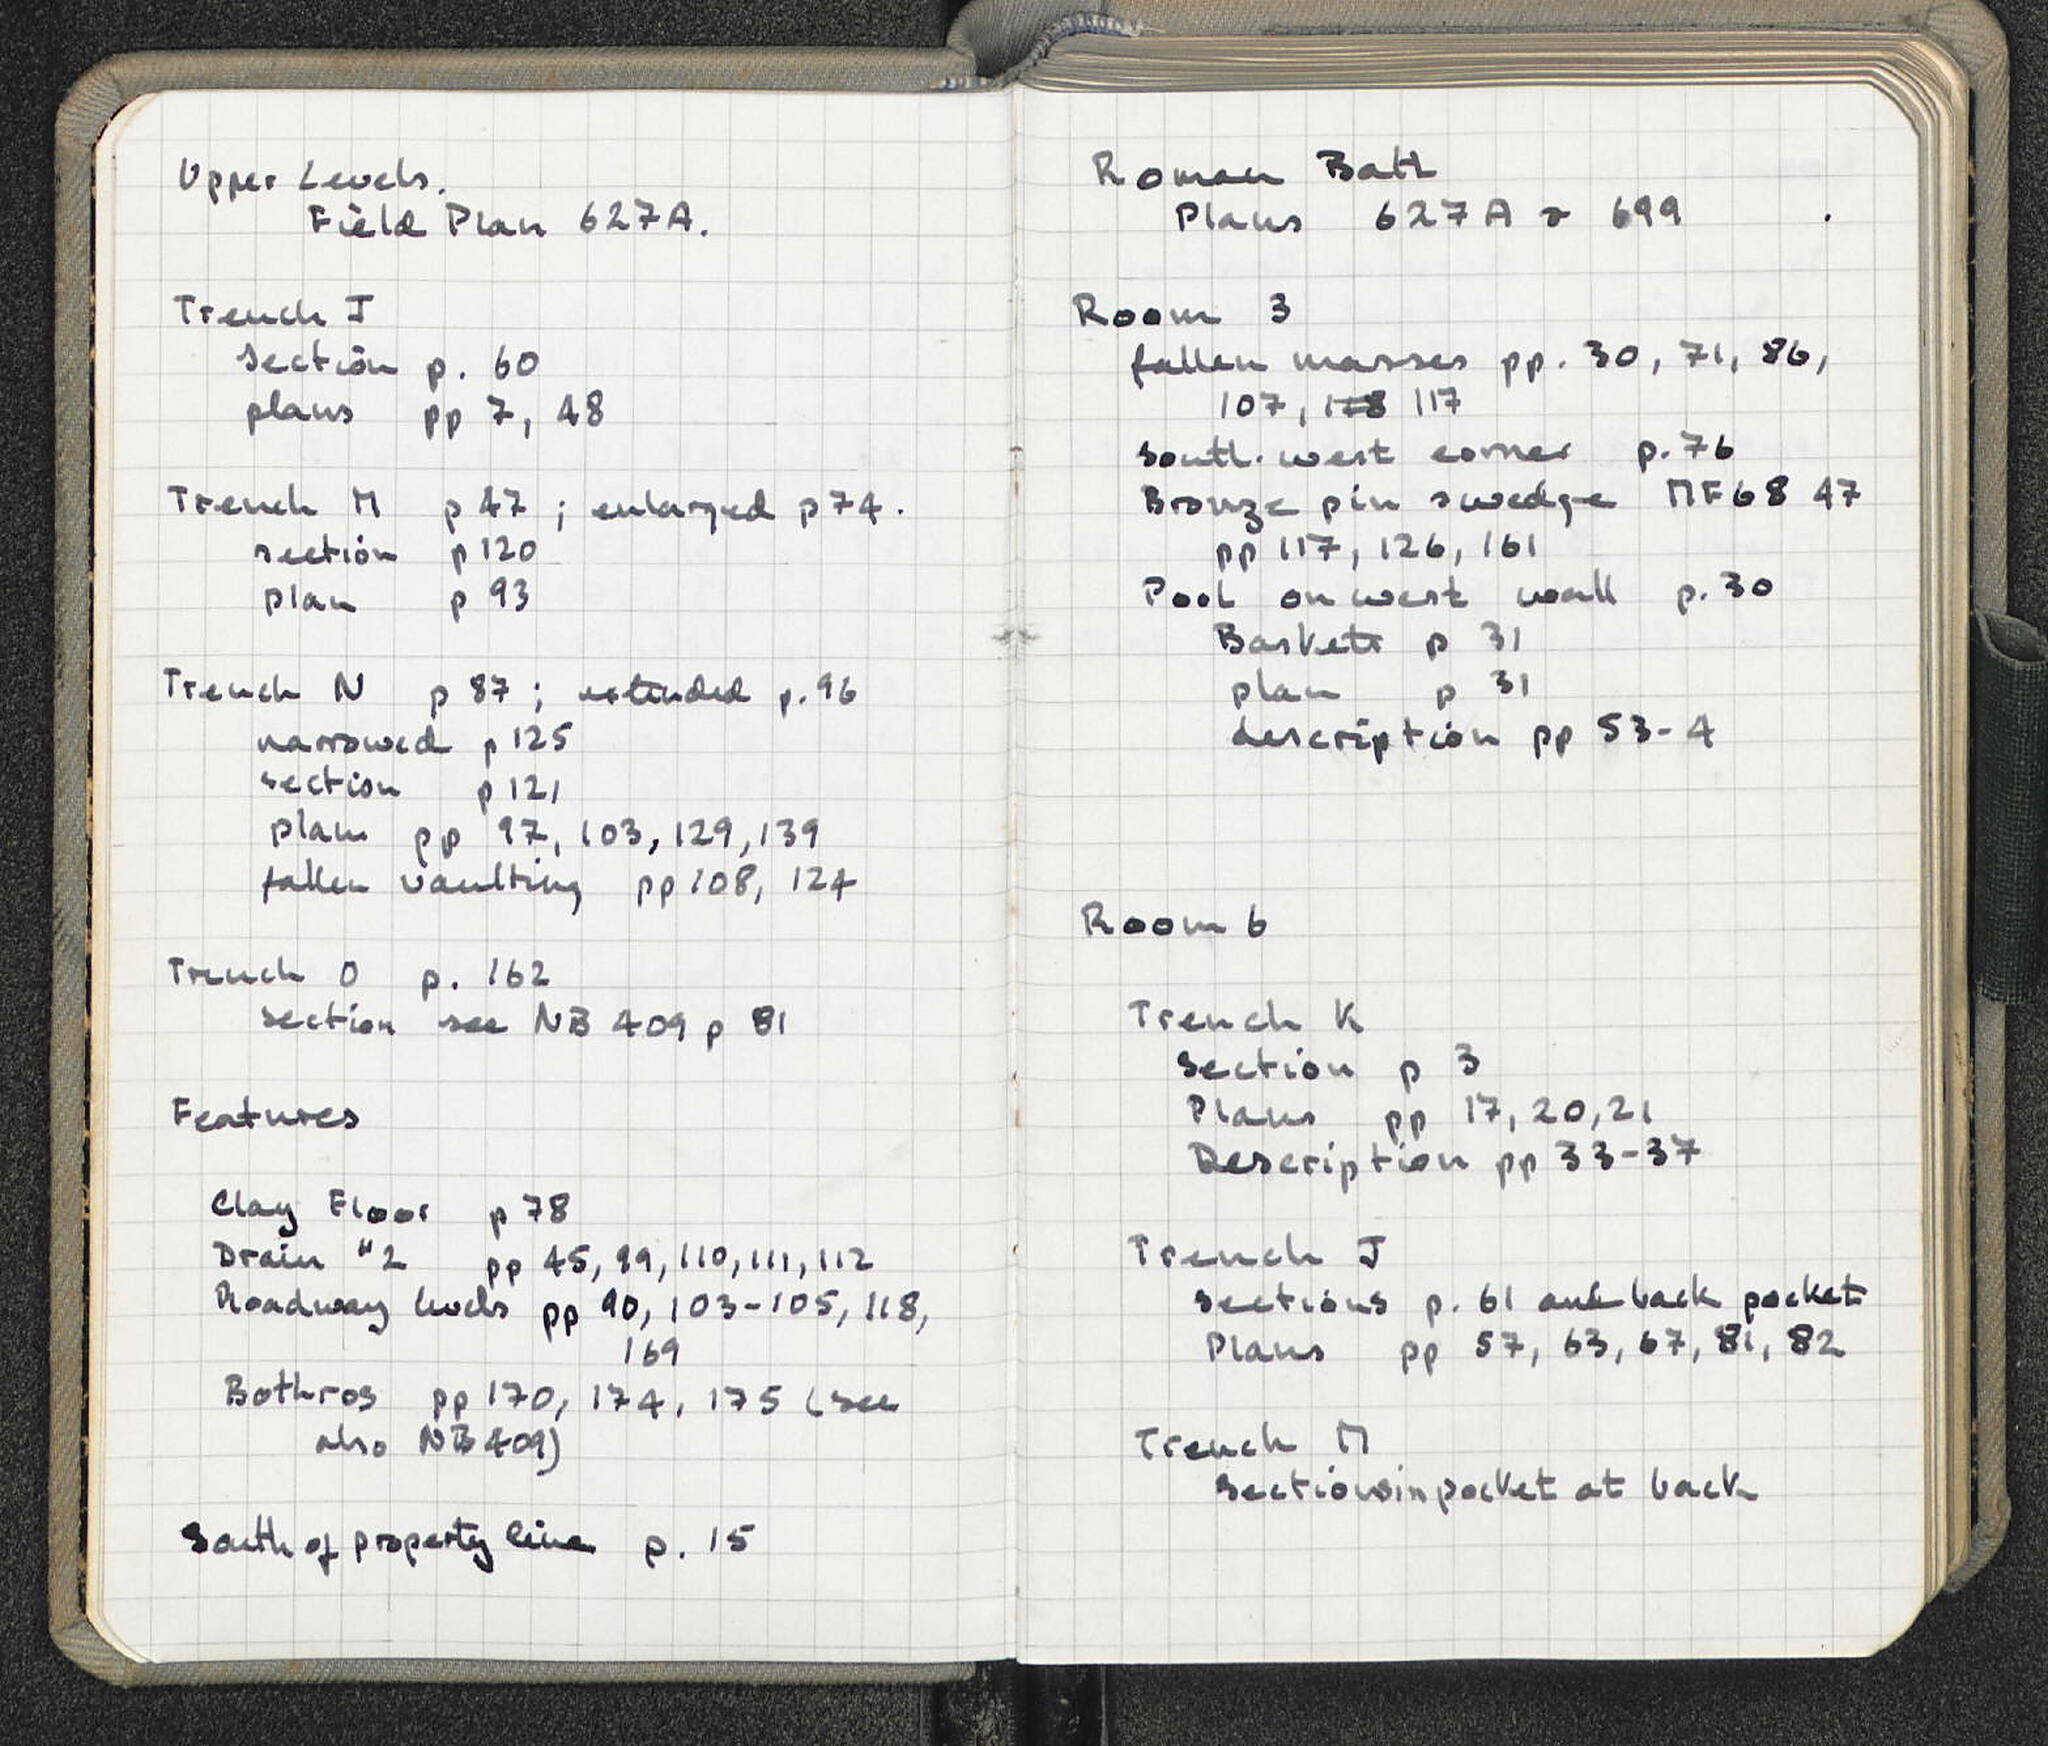 Upper Levels.
Field Plan 627A.
Trench J
Section p. 60
plans pp 7, 48
Trench M p 47 ; enlarged p 74.
section p 120
plan p 93
Trench N p 87 ; extended p. 96
narrowed p 125
section p 121
plans pp 97, 103, 129, 139
fallen vaulting pp 108, 124
Trench O p. 162
section see NB 409 p 81
Features
Clay Floor p 78
Drain #2 pp 45, 99, 110, 111, 112
Roadway levels pp 90, 103-105, 118,
169
Bothros pp 170, 174, 175 (see
also NB 409)
South of property line p. 15
Roman Bath
Plans 627A & 699
Room 3
fallen masses pp. 30, 71, 86,
107, 117
South-west corner p. 76
Bronze pin swedge MF 68 47
pp 117, 126, 161
Pool on west wall p. 30
Baskets p 31
plan p 31
description pp 53-4
Room 6
Trench K
Section p 3
Plans pp 17, 20, 21
Description pp 33-37
Trench J
Sections p. 61 and back pocket
Plans pp 57, 63, 67, 81, 82
Trench M
Sections in pocket at back